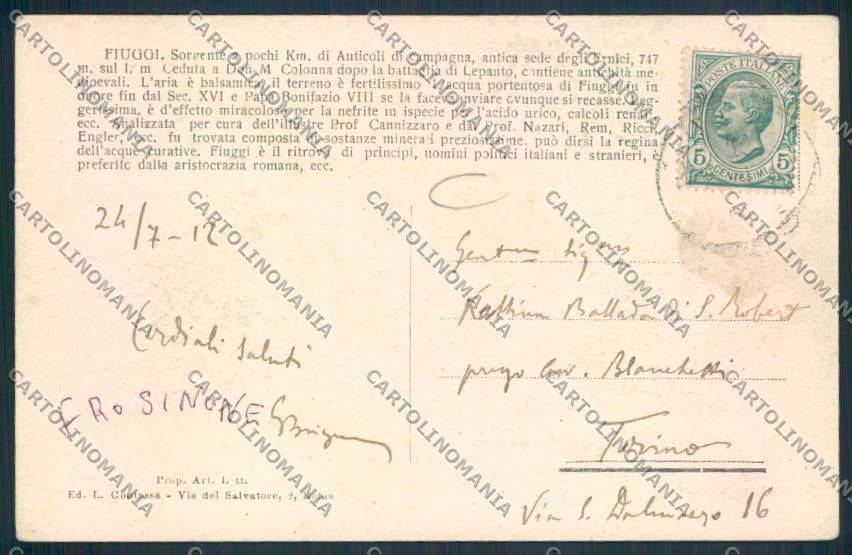 FIUGGI. Sorgente a pochi Km. di Anticoli di Campagna, antica sede degli Ernici, 747
m. sul l. m Ceduta a Don M Colonna dopo la battaglia di Lepanto, contiene antichità me-
dioevali. L'aria è balsamica, il terreno è fertilissimo L'acqua portentosa di Fiuggi fu in
onore fin dal Sec. XVI e Papa Bonifazio VIII se la faceva inviare ovunque si recasse. Leg-
gerissima, è d'effetto miracoloso per la nefrite in ispecie per l'acido urico, calcoli renali
ecc. Analizzata per cura dell'illustre Prof Cannizzaro e dai Prof. Nazari, Rem, Ricci,
Engler, ecc. fu trovata composta di sostanze minerali preziosissime. può dirsi la regina
dell'acque curative. Fiuggi è il ritrovo di principi, uomini politici italiani e stranieri, è
preferito dalla aristocrazia romana, ecc.
POSTE ITALIANE
5 5
CENTESIMI
24/7-12
Cordiali saluti
FROSINONE
Ballada di S. Robert
Blanchetti
Torino
Via S. Dalmazzo 16
Prop. Art. Lett.
Ed. L. - Via del Salvatore, 2,
CARTOLINOMANIA